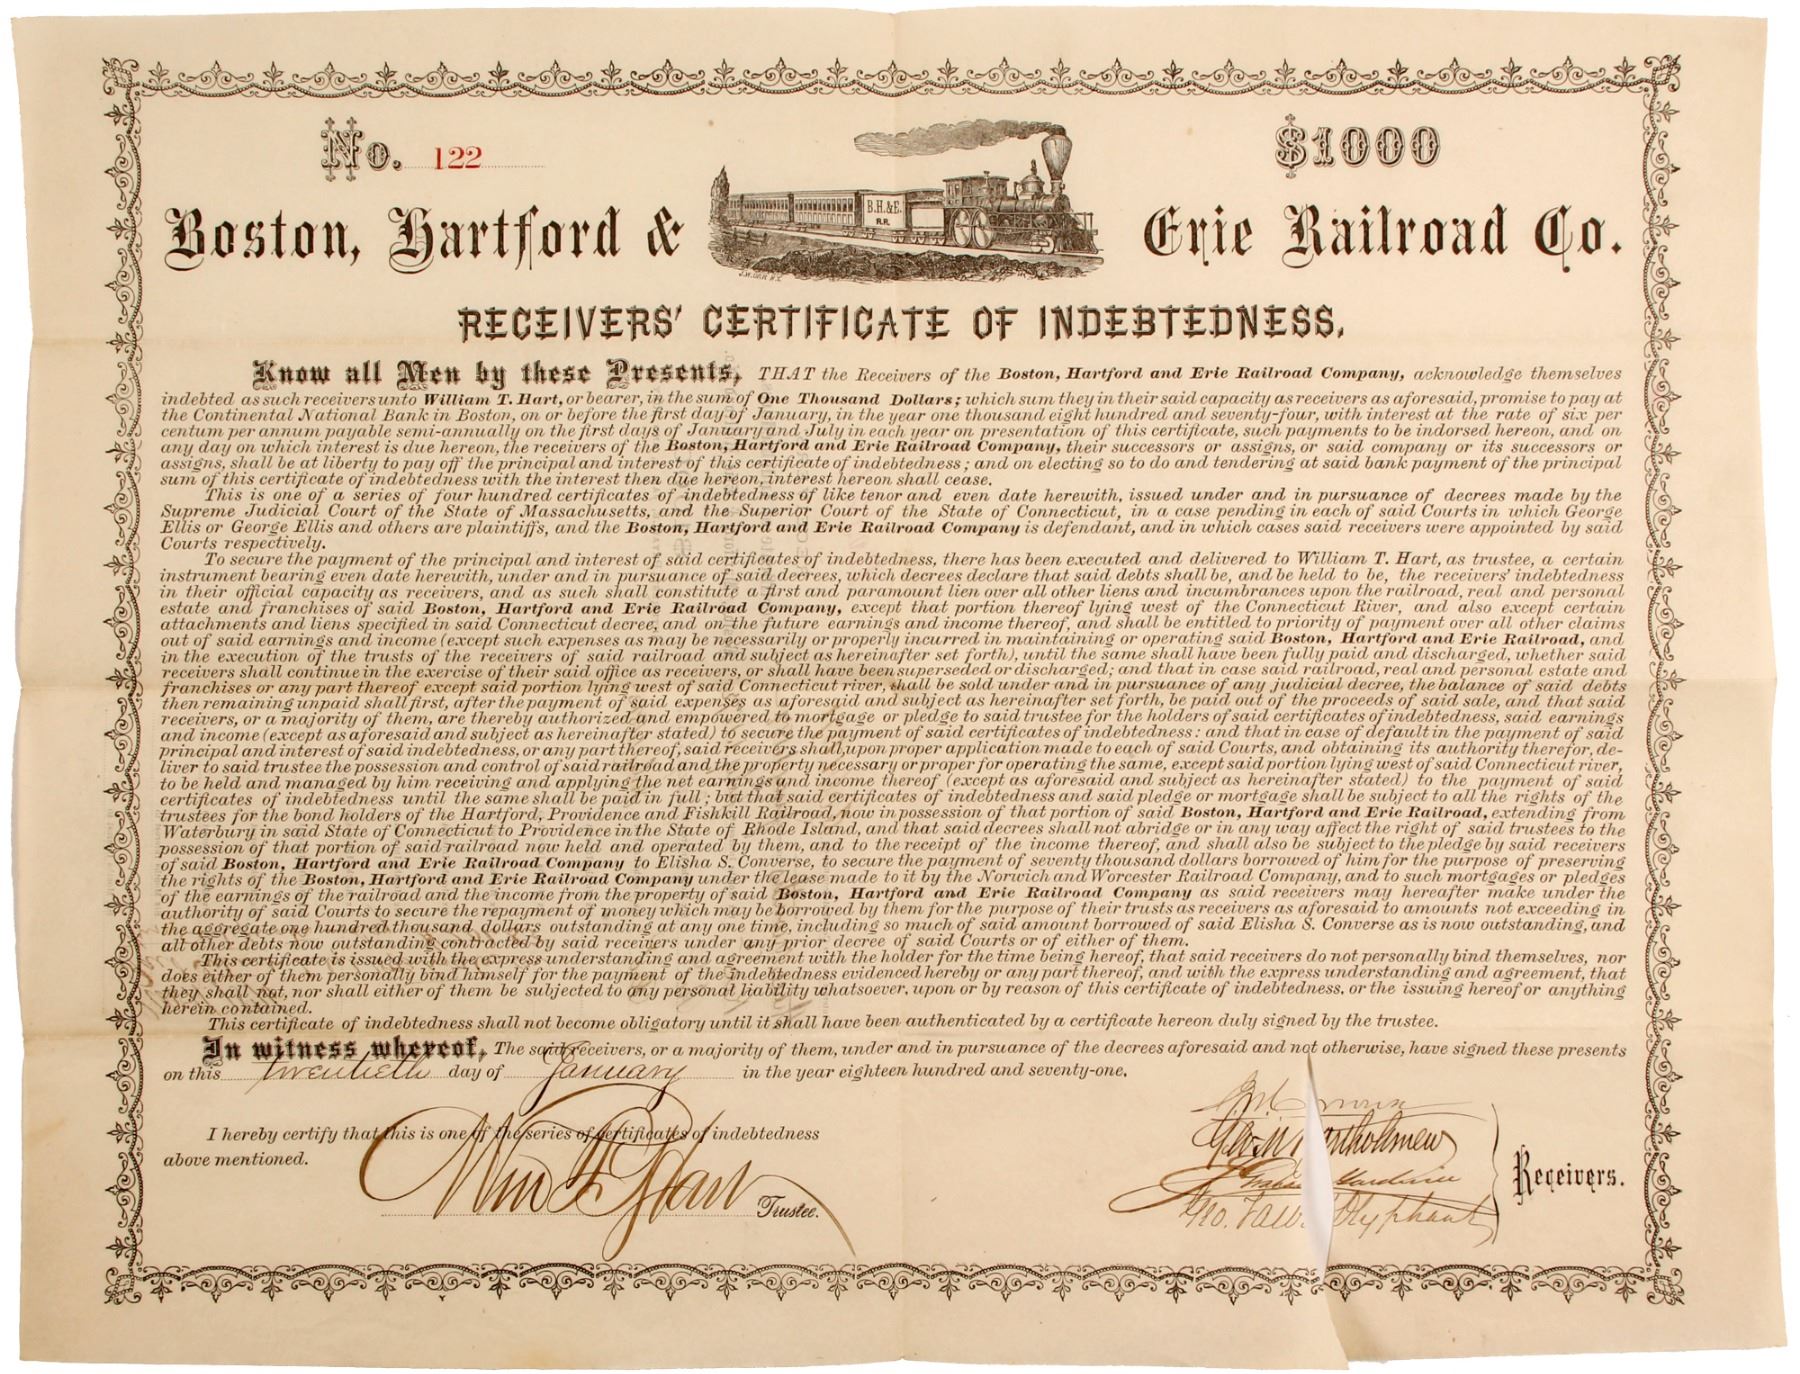 No. 122
$1000
B.H.&E.
R.R.
Boston, Hartford & Erie Railroad Co.
RECEIVERS' CERTIFICATE OF INDEBTEDNESS.
Know all Men by these Presents, THAT the Receivers of the Boston, Hartford and Erie Railroad Company, acknowledge themselves
indebted as such receivers unto William T. Hart, or bearer, in the sum of One Thousand Dollars; which sum they in their said capacity as receivers as aforesaid, promise to pay at
the Continental National Bank in Boston, on or before the first day of January, in the year one thousand eight hundred and seventy-four, with interest at the rate of six per
centum per annum payable semi-annually on the first days of January and July in each year on presentation of this certificate, such payments to be indorsed hereon, and on
any day on which interest is due hereon, the receivers of the Boston, Hartford and Erie Railroad Company, their successors or assigns, or said company or its successors or
assigns, shall be at liberty to pay off the principal and interest of this certificate of indebtedness; and on electing so to do and tendering at said bank payment of the principal
sum of this certificate of indebtedness with the interest then due hereon, interest hereon shall cease.
This is one of a series of four hundred certificates of indebtedness of like tenor and even date herewith, issued under and in pursuance of decrees made by the
Supreme Judicial Court of the State of Massachusetts, and the Superior Court of the State of Connecticut, in a case pending in each of said Courts in which George
Ellis or George Ellis and others are plaintiffs, and the Boston, Hartford and Erie Railroad Company is defendant, and in which cases said receivers were appointed by said
Courts respectively.
To secure the payment of the principal and interest of said certificates of indebtedness, there has been executed and delivered to William T. Hart, as trustee, a certain
instrument bearing even date herewith, under and in pursuance of said decrees, which decrees declare that said debts shall be, and be held to be, the receivers' indebtedness
in their official capacity as receivers, and as such shall constitute a first and paramount lien over all other liens and incumbrances upon the railroad, real and personal
estate and franchises of said Boston, Hartford and Erie Railroad Company, except that portion thereof lying west of the Connecticut River, and also except certain
attachments and liens specified in said Connecticut decree, and on the future earnings and income thereof, and shall be entitled to priority of payment over all other claims
out of said earnings and income (except such expenses as may be necessarily or properly incurred in maintaining or operating said Boston, Hartford and Erie Railroad, and
in the execution of the trusts of the receivers of said railroad and subject as hereinafter set forth), until the same shall have been fully paid and discharged, whether said
receivers shall continue in the exercise of their said office as receivers, or shall have been superseded or discharged; and that in case said railroad, real and personal estate and
franchises or any part thereof except said portion lying west of said Connecticut river, shall be sold under and in pursuance of any judicial decree, the balance of said debts
then remaining unpaid shall first, after the payment of said expenses as aforesaid and subject as hereinafter set forth, be paid out of the proceeds of said sale, and that said
receivers, or a majority of them, are thereby authorized and empowered to mortgage or pledge to said trustee for the holders of said certificates of indebtedness, said earnings
and income (except as aforesaid and subject as hereinafter stated) to secure the payment of said certificates of indebtedness: and that in case of default in the payment of said
principal and interest of said indebtedness, or any part thereof, said receivers shall, upon proper application made to each of said Courts, and obtaining its authority therefor, de-
liver to said trustee the possession and control of said railroad and the property necessary or proper for operating the same, except said portion lying west of said Connecticut river,
to be held and managed by him receiving and applying the net earnings and income thereof (except as aforesaid and subject as hereinafter stated) to the payment of said
certificates of indebtedness until the same shall be paid in full; but that said certificates of indebtedness and said pledge or mortgage shall be subject to all the rights of the
trustees for the bond holders of the Hartford, Providence and Fishkill Railroad, now in possession of that portion of said Boston, Hartford and Erie Railroad, extending from
Waterbury in said State of Connecticut to Providence in the State of Rhode Island, and that said decrees shall not abridge or in any way affect the right of said trustees to the
possession of that portion of said railroad now held and operated by them, and to the receipt of the income thereof, and shall also be subject to the pledge by said receivers
of said Boston, Hartford and Erie Railroad Company to Elisha S. Converse, to secure the payment of seventy thousand dollars borrowed of him for the purpose of preserving
the rights of the Boston, Hartford and Erie Railroad Company under the lease made to it by the Norwich and Worcester Railroad Company, and to such mortgages or pledges
of the earnings of the railroad and the income from the property of said Boston, Hartford and Erie Railroad Company as said receivers may hereafter make under the
authority of said Courts to secure the repayment of money which may be borrowed by them for the purpose of their trusts as receivers as aforesaid to amounts not exceeding in
the aggregate one hundred thousand dollars outstanding at any one time, including so much of said amount borrowed of said Elisha S. Converse as is now outstanding, and
all other debts now outstanding contracted by said receivers under any prior decree of said Courts or of either of them.
This certificate is issued with the express understanding and agreement with the holder for the time being hereof, that said receivers do not personally bind themselves, nor
does either of them personally bind himself for the payment of the indebtedness evidenced hereby or any part thereof, and with the express understanding and agreement, that
they shall not, nor shall either of them be subjected to any personal liability whatsoever, upon or by reason of this certificate of indebtedness, or the issuing hereof or anything
herein contained.
This certificate of indebtedness shall not become obligatory until it shall have been authenticated by a certificate hereon duly signed by the trustee.
In witness whereof, The said receivers, or a majority of them, under and in pursuance of the decrees aforesaid and not otherwise, have signed these presents
on this twentieth day of January in the year eighteen hundred and seventy-one.
I hereby certify that this is one of the series of certificates of indebtedness
above mentioned.
Wm T Hart Trustee.
Geo M Bartholomew
Geo. Talbot Olyphant
Receivers.